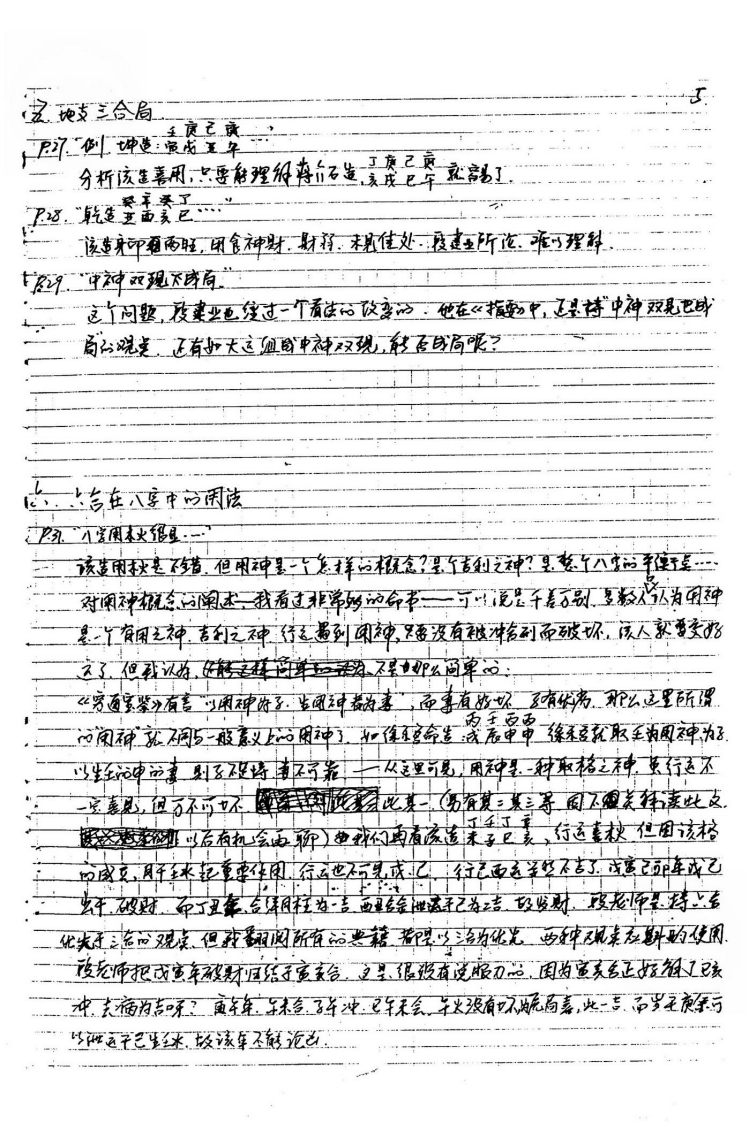 5
五、地支三合局
P.27. "例 坤造: 壬寅 庚戌 己丑 庚午 …"
分析该造喜用,只要能理解蒋介石造,丁亥 庚戌 己巳 庚午 就容易了.
P.28. "乾造 癸丑 辛酉 癸亥 丁巳 …"
该造身印两旺,用食神财. 财 未见佳处. 段建业所论, 难以理解.
P.29 "中神双现不成局."
这个问题,段建业也经过一个看法的改变的. 他在《指要》中,还是持"中神双见也成
局"的观点. 还有如大运组成中神双现,能否成局呢?
六、六合在八字中的用法
P.31. "八字用木火很显…"
该造用木火是不错,但用神是一个怎样的概念?是个吉利之神?是整个八字的平衡点…
对用神概念的阐述,我看过非常多的命书——可以说是千差万别,多数人认为用神
是一个有用之神,吉利之神,行运遇到用神,只要没有被冲合刑而破坏,该人就要变好
运了,但我认为,不是那么简单的:
《穷通宝鉴》有言"以用神为子,生用神者为妻",而妻有好坏,子有优劣,那么这里所谓
的"用神"就不同与一般意义上的用神了,如徐乐吾命造:丙戌 壬辰 丙申 丙申 徐乐吾就取壬为用神,为子
以生壬的申为妻,则子不坚持 妻不可靠——从这里可见,用神是一种取格之神,其行运不
一定喜见,但万不可坏 此其一(另有其二其三等 因不是关释读此文
以后有机会再聊)我们再看该造 丁未 壬子 丁巳 辛亥,行运喜秋,但因该格
的成立,月干壬水起重要作用,行运也不可见戊、己,行己酉运当然不吉了,戊寅己卯年戊己
出干,破财,而丁丑年,合绊月柱为一吉,酉丑会金泄运干己为二吉,故发财,段老师是持六合
优先于三合的观点,但我翻阅所有的典籍,都是以三合为优先,两种观点
段老师把戊寅年破财归结于寅亥合,这是很没有说服力的,因为寅亥合正好解了巳亥
冲,去病为吉呀?庚午年,午未合,子午冲,巳午未会,午火没有坏为局喜,此一吉,而岁干庚金可
以泄运干己生壬水,故该年不能论凶.